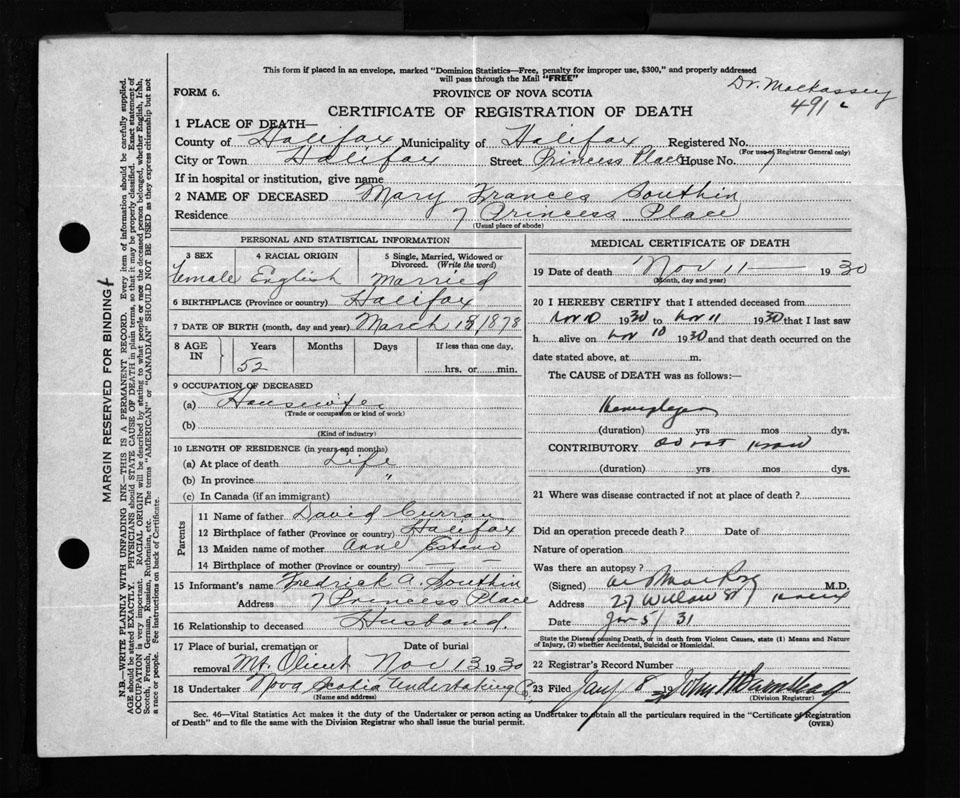 This form if placed in an envelope, marked "Dominion Statistics—Free, penalty for improper use, $300," and properly addressed
will pass through the Mail "FREE"
Dr. Mackassey
491
FORM 6.
PROVINCE OF NOVA SCOTIA
CERTIFICATE OF REGISTRATION OF DEATH
1 PLACE OF DEATH—
County of Halifax Municipality of Halifax Registered No.
(For use of Registrar General only)
City or Town Halifax Street Princess Place House No. 7
If in hospital or institution, give name
2 NAME OF DECEASED Mary Frances Southin
Residence 7 Princess Place
(Usual place of abode)
PERSONAL AND STATISTICAL INFORMATION
3 SEX 4 RACIAL ORIGIN 5 Single, Married, Widowed or Divorced. (Write the word)
Female English Married
6 BIRTHPLACE (Province or country) Halifax
7 DATE OF BIRTH (month, day and year) March 15/1878
8 AGE IN Years Months Days If less than one day,
52 hrs. or min.
9 OCCUPATION OF DECEASED
(a) Housewife
(Trade or occupation or kind of work)
(b)
(Kind of industry)
10 LENGTH OF RESIDENCE (in years and months)
(a) At place of death Life
(b) In province "
(c) In Canada (if an immigrant)
Parents
11 Name of father David Curran
12 Birthplace of father (Province or country) Halifax
13 Maiden name of mother Anne Estano
14 Birthplace of mother (Province or country) — —
15 Informant's name Fredrick A. Southin
Address 7 Princess Place
16 Relationship to deceased Husband.
17 Place of burial, cremation or removal Date of burial
Mt. Olivet Nov 13 1930
18 Undertaker Nova Scotia Undertaking Co.
(Name and address)
MEDICAL CERTIFICATE OF DEATH
19 Date of death Nov 11 — 1930
(Month, day and year)
20 I HEREBY CERTIFY that I attended deceased from
Nov 10 1930 to Nov 11 1930 that I last saw
h alive on Nov 10 1930 and that death occurred on the
date stated above, at m.
The CAUSE of DEATH was as follows:—
(duration) yrs mos dys.
CONTRIBUTORY do not know
(duration) yrs mos dys.
21 Where was disease contracted if not at place of death?
Did an operation precede death? Date of
Nature of operation
Was there an autopsy?
(Signed) M.D.
Address 27 Willow St
Date Jan 5/31
State the Disease causing Death, or in death from Violent Causes, state (1) Means and Nature
of Injury, (2) whether Accidental, Suicidal or Homicidal.
22 Registrar's Record Number
23 Filed Jany 8 19
(Division Registrar)
Sec. 46—Vital Statistics Act makes it the duty of the Undertaker or person acting as Undertaker to obtain all the particulars required in the "Certificate of Registration
of Death" and to file the same with the Division Registrar who shall issue the burial permit.
(OVER)
MARGIN RESERVED FOR BINDING
N.B.—WRITE PLAINLY WITH UNFADING INK—THIS IS A PERMANENT RECORD. Every item of information should be carefully supplied.
AGE should be stated EXACTLY. PHYSICIANS should STATE CAUSE OF DEATH in plain terms, so that it may be properly classified. Exact statement of
OCCUPATION is very important. RACIAL ORIGIN will be described by stating to what people or race the deceased person belonged, whether English, Irish,
Scotch, French, German, Russian, Ruthenian, etc. The terms "AMERICAN" or "CANADIAN" SHOULD NOT BE USED as they express citizenship but not
a race or people. See instructions on back of Certificate.